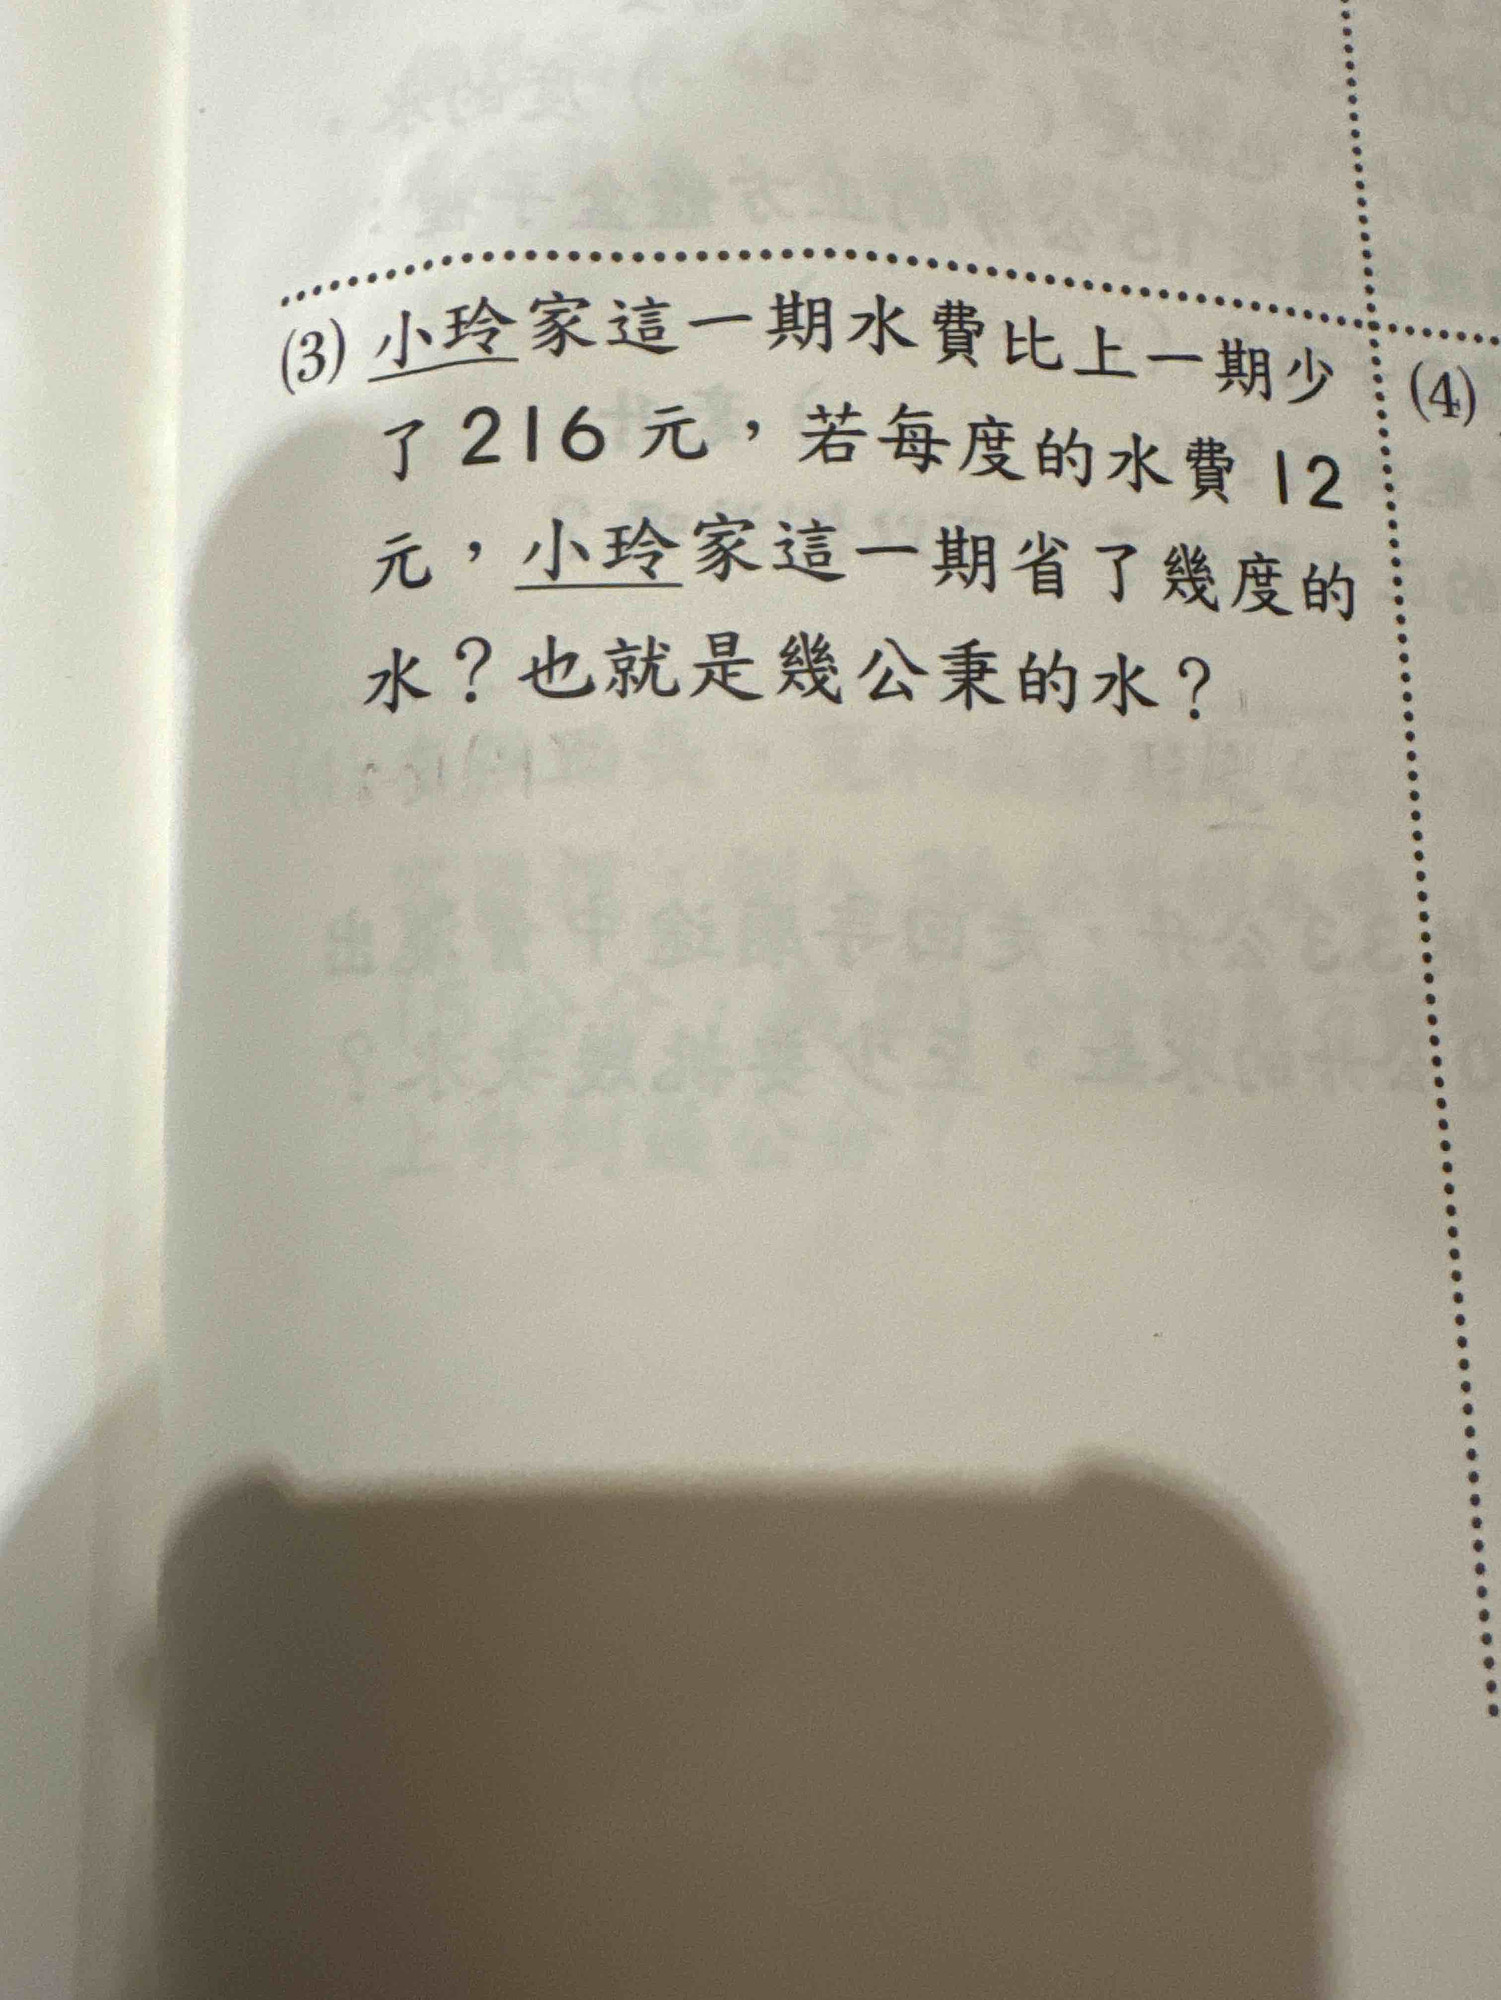 (3) 小玲家這一期水費比上一期少
了216元，若每度的水費12
元，小玲家這一期省了幾度的
水？也就是幾公秉的水？
(4)